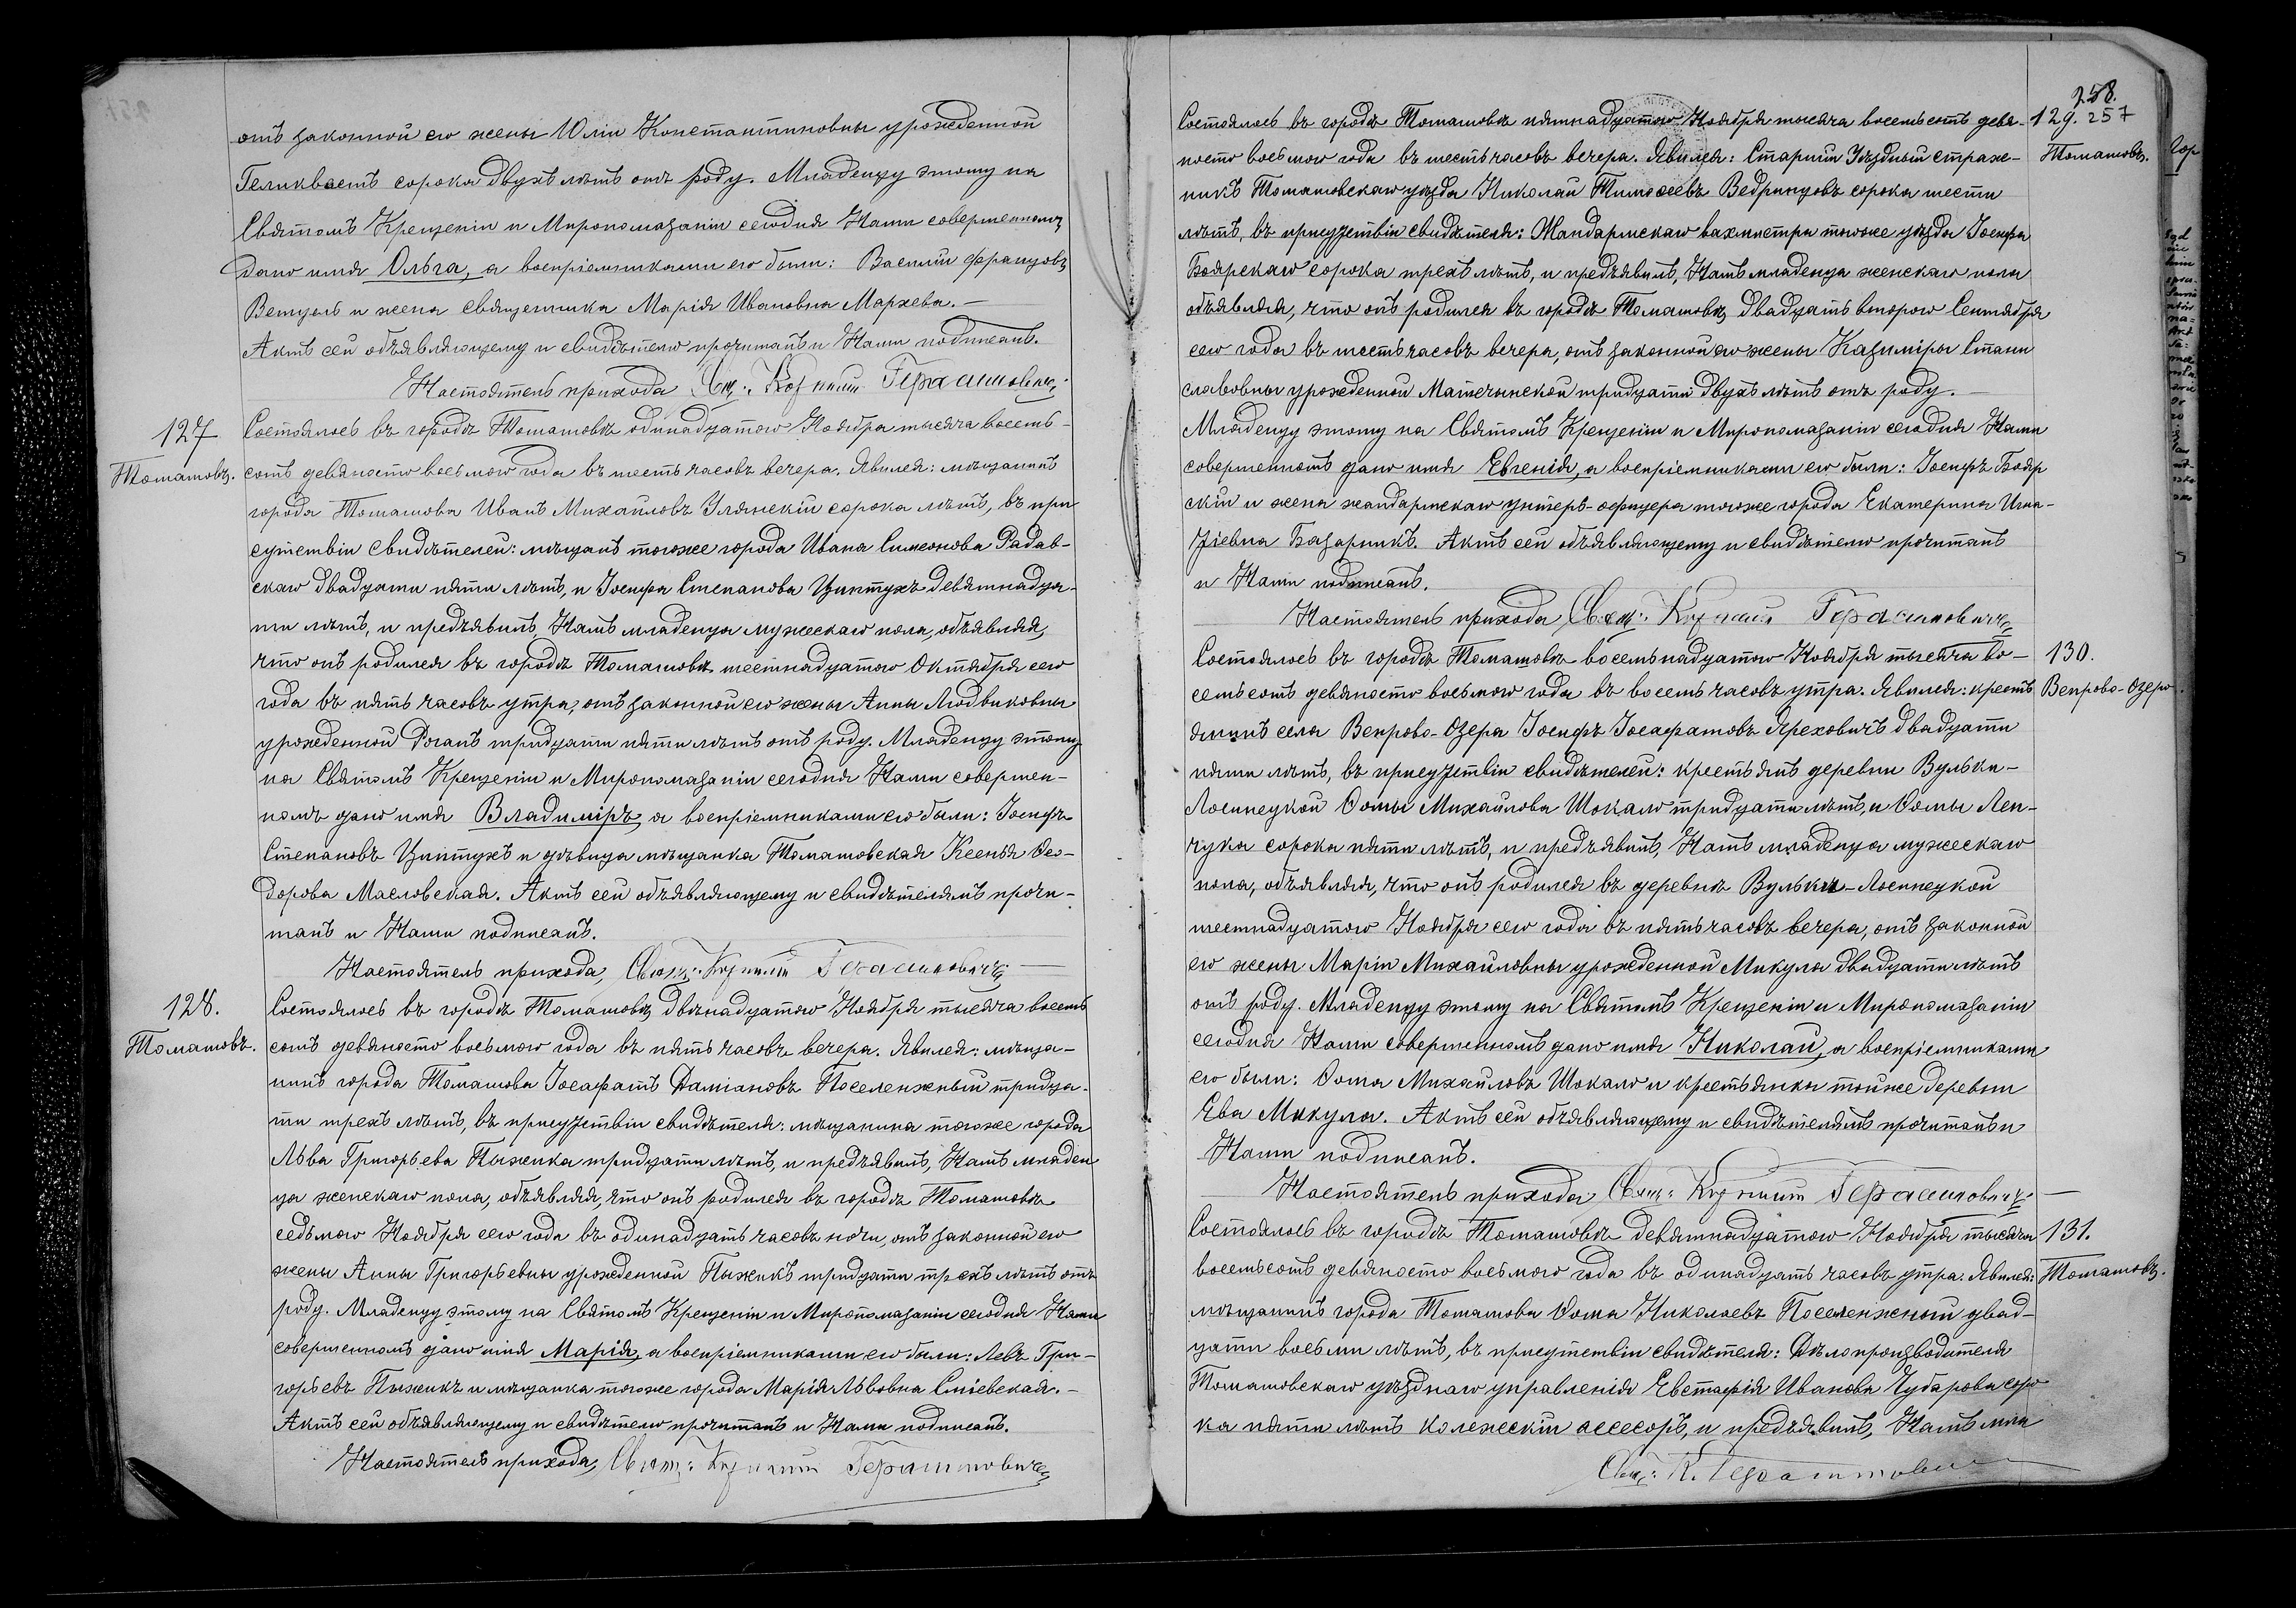 отъ законной его жены Юліи Константиновны урожденной
Геликвастъ сорока двухъ лѣтъ отъ роду. Младенцу этому на
Святомъ Крещеніи и Мѵропомазаніи сегодня Нами совершенномъ
дано имя Ольга, а воспріемниками его были: Василій Францовъ
Венцель и жена священника Марія Ивановна Мархева. —
Актъ сей объявляющему и свидѣтелю прочитанъ и Нами подписанъ.
Настоятель прихода Свящ: Корнилій Герасимовичъ
127 Состоялось въ городѣ Томашовѣ одинадцатого Ноября тысяча восемь-
Томашовъ. сотъ девяносто восьмого года въ шесть часовъ вечера. Явился: мѣщанинъ
города Томашова Иванъ Михайловъ Улянскій сорока лѣтъ, въ при
сутствіи свидѣтелей: мѣщанъ тогоже города Ивана Симеонова Радав-
скаго двадцати пяти лѣтъ, и Іосифа Степанова Циптухъ девятнадца-
ти лѣтъ, и предъявилъ Намъ младенца мужескаго пола, объявляя,
что онъ родился въ городѣ Томашовѣ шестнадцатого Октября сего
года въ пять часовъ утра, отъ законной его жены Анны Людвиковны
урожденной Роганъ тридцати пяти лѣтъ отъ роду. Младенцу этому
на Святомъ Крещеніи и Мѵропомазаніи сегодня Нами совершен-
номъ дано имя Владиміръ, а воспріемниками его были: Іосифъ
Степановъ Циптухъ и дѣвица мѣщанка Томашовская Ксенья Ѳео-
дорова Масловская. Актъ сей объявляющему и свидѣтелямъ прочи-
танъ и Нами подписанъ.
Настоятель прихода, Свящ: Корнилій Герасимовичъ
128. Состоялось въ городѣ Томашовѣ двѣнадцатого Ноября тысяча восемь
Томашовъ. сотъ девяносто восьмого года въ пять часовъ вечера. Явился: мѣща-
нинъ города Томашова Іосафатъ Даміановъ Поселенжный тридца-
ти трехъ лѣтъ, въ присутствіи свидѣтеля: мѣщанина тогоже города
Льва Григорьева Пыжика тридцати лѣтъ, и предъявилъ, Намъ младен
ца женскаго пола, объявляя, что онъ родился въ городѣ Томашовѣ
седьмого Ноября сего года въ одинадцать часовъ ночи, отъ законной его
жены Анны Григорьевны урожденной Пыжикъ тридцати трехъ лѣтъ отъ
роду. Младенцу этому на Святомъ Крещеніи и Мѵропомазаніи сегодня Нами
совершенномъ дано имя Марія, а воспріемниками его были: Левъ Гри-
горьевъ Пыжикъ и мѣщанка тогоже города Марія Львовна Сніевская. —
Актъ сей объявляющему и свидѣтелю прочитанъ и Нами подписанъ.
Настоятель прихода, Свящ: Корнилій Герасимовичъ
258.
257
129. Состоялось въ городѣ Томашовѣ пятнадцатого Ноября тысяча восемьсотъ девя-
Томашовъ. носто восьмого года въ шесть часовъ вечера. Явился: Старшій Уѣздный страж-
никъ Томашовскаго уѣзда Николай Тимоѳеевъ Ведринцовъ сорока шести
лѣтъ, въ присутствіи свидѣтеля: Жандармскаго вахмистра тогоже уѣзда Іосифа
Боярскаго сорока трехъ лѣтъ, и предъявилъ, Намъ младенца женскаго пола
объявляя, что онъ родился въ городѣ Томашовѣ, двадцать второго Сентября
сего года въ шесть часовъ вечера, отъ законной его жены Казиміры Стани
славовны урожденной Матечынской тридцати двухъ лѣтъ отъ роду. —
Младенцу этому на Святомъ Крещеніи и Мѵропомазаніи сегодня Нами
совершенномъ дано имя Евгенія, а воспріемниками его были: Іосифъ Бояр
скій и жена жандармскаго унтеръ-офицера тогоже города Екатерина Игна-
ціевна Базарникъ. Актъ сей объявляющему и свидѣтелю прочитанъ
и Нами подписанъ.
Настоятель прихода Свящ: Корнилій Герасимовичъ
130. Состоялось въ городѣ Томашовѣ восемьнадцатого Ноября тысяча во-
Вепрово-Озеро. семьсотъ девяносто восьмого года въ восемь часовъ утра. Явился: кресть
янинъ села Вепрово-Озера Іосифъ Іосафатовъ Яреховичъ двадцати
пяти лѣтъ, въ присутствіи свидѣтелей: крестьянъ деревни Вульки-
Лосинецкой Ѳомы Михайлова Шокало тридцати лѣтъ, и Ѳомы Лен-
чука сорока пяти лѣтъ, и предъявилъ, Намъ младенца мужескаго
пола, объявляя, что онъ родился въ деревнѣ Вульки-Лосинецкой
шестнадцатого Ноября сего года въ пять часовъ вечера, отъ законной
его жены Маріи Михайловны урожденной Микула двадцати лѣтъ
отъ роду. Младенцу этому на Святомъ Крещеніи и Мѵропомазаніи
сегодня Нами совершенномъ дано имя Николай, а воспріемниками
его были: Ѳома Михайловъ Шокало и крестьянка тойже деревни
Ева Микула. Актъ сей объявляющему и свидѣтелямъ прочитанъ и
Нами подписанъ.
Настоятель прихода, Свящ: Корнилій Герасимовичъ
131. Состоялось въ городѣ Томашовѣ девятнадцатого Ноября тысяча
Томашовъ. восемьсотъ девяносто восьмого года въ одинадцать часовъ утра. Явился:
мѣщанинъ города Томашова Ѳома Николаевъ Поселенжный двад-
цати восьми лѣтъ, въ присутствіи свидѣтеля: Дѣлопроизводителя
Томашовскаго уѣзднаго управленія Евстафія Иванова Чубарова соро
ка пяти лѣтъ колежскій ассесоръ, и предъявилъ, Намъ мла
Свящ: К. Герасимовичъ